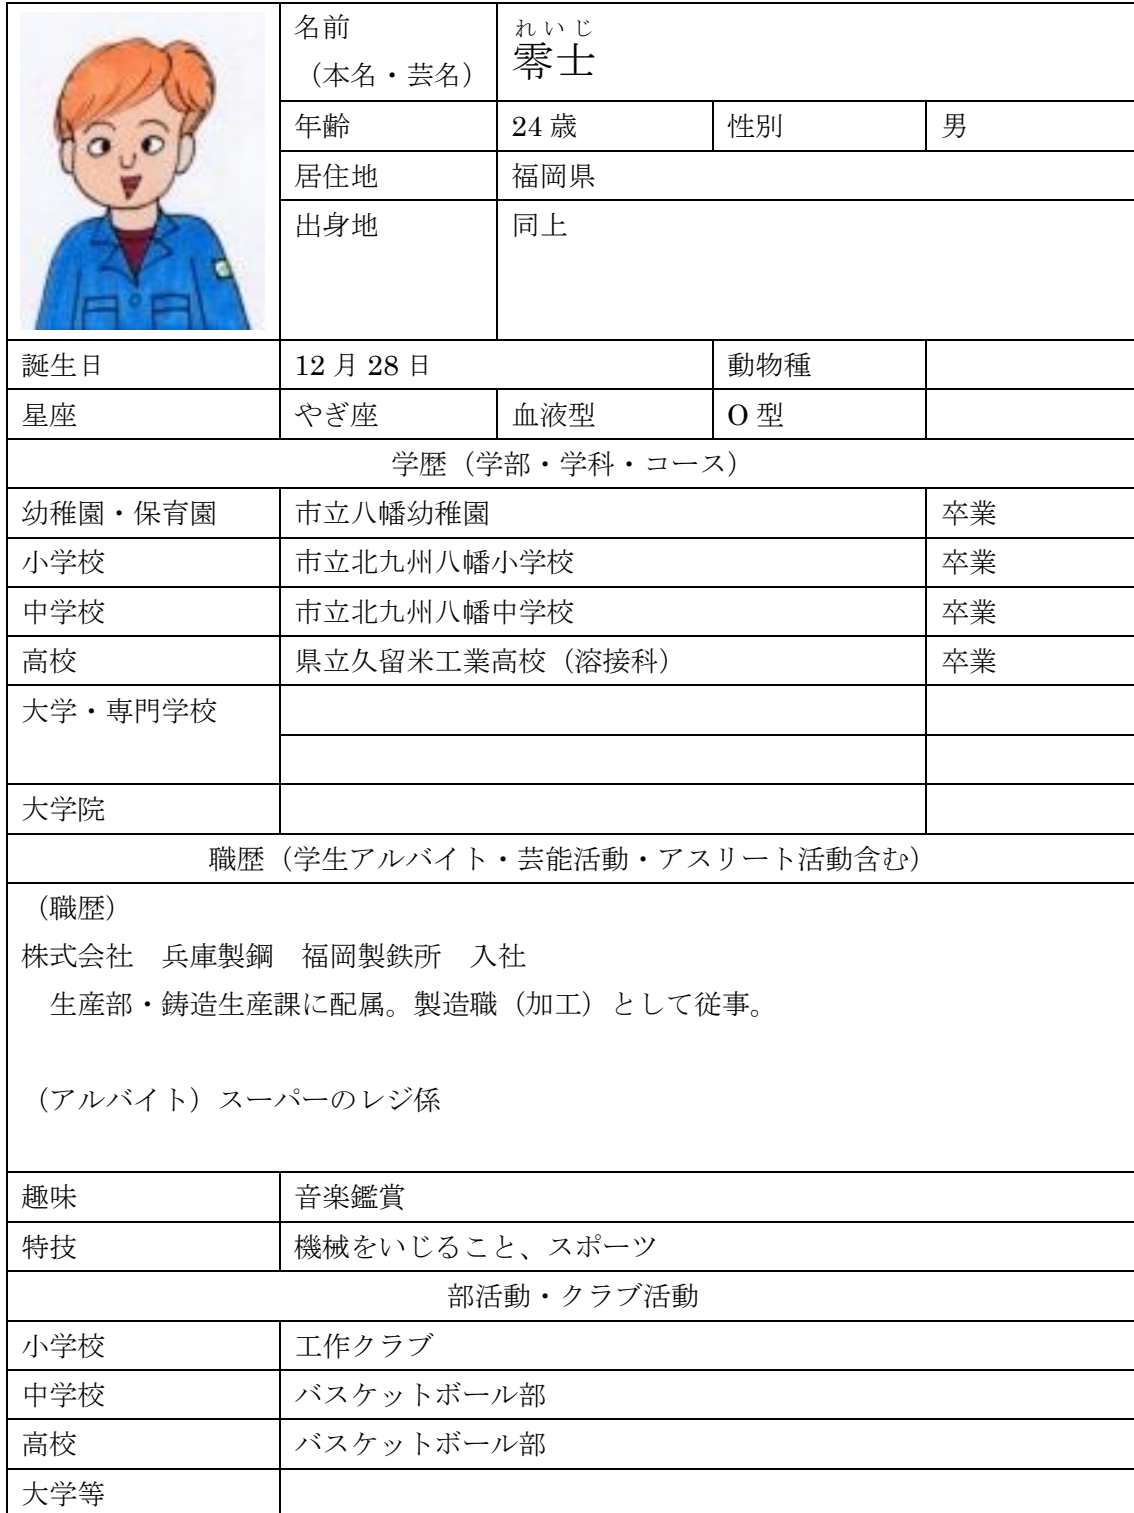 名前
（本名・芸名）
れいじ
零士
年齢 24 歳 性別 男
居住地 福岡県
出身地 同上
誕生日 12 月 28 日 動物種
星座 やぎ座 血液型 O 型
学歴（学部・学科・コース）
幼稚園・保育園 市立八幡幼稚園 卒業
小学校 市立北九州八幡小学校 卒業
中学校 市立北九州八幡中学校 卒業
高校 県立久留米工業高校（溶接科） 卒業
大学・専門学校
大学院
職歴（学生アルバイト・芸能活動・アスリート活動含む）
（職歴）
株式会社　兵庫製鋼　福岡製鉄所　入社
生産部・鋳造生産課に配属。製造職（加工）として従事。
（アルバイト）スーパーのレジ係
趣味 音楽鑑賞
特技 機械をいじること、スポーツ
部活動・クラブ活動
小学校 工作クラブ
中学校 バスケットボール部
高校 バスケットボール部
大学等